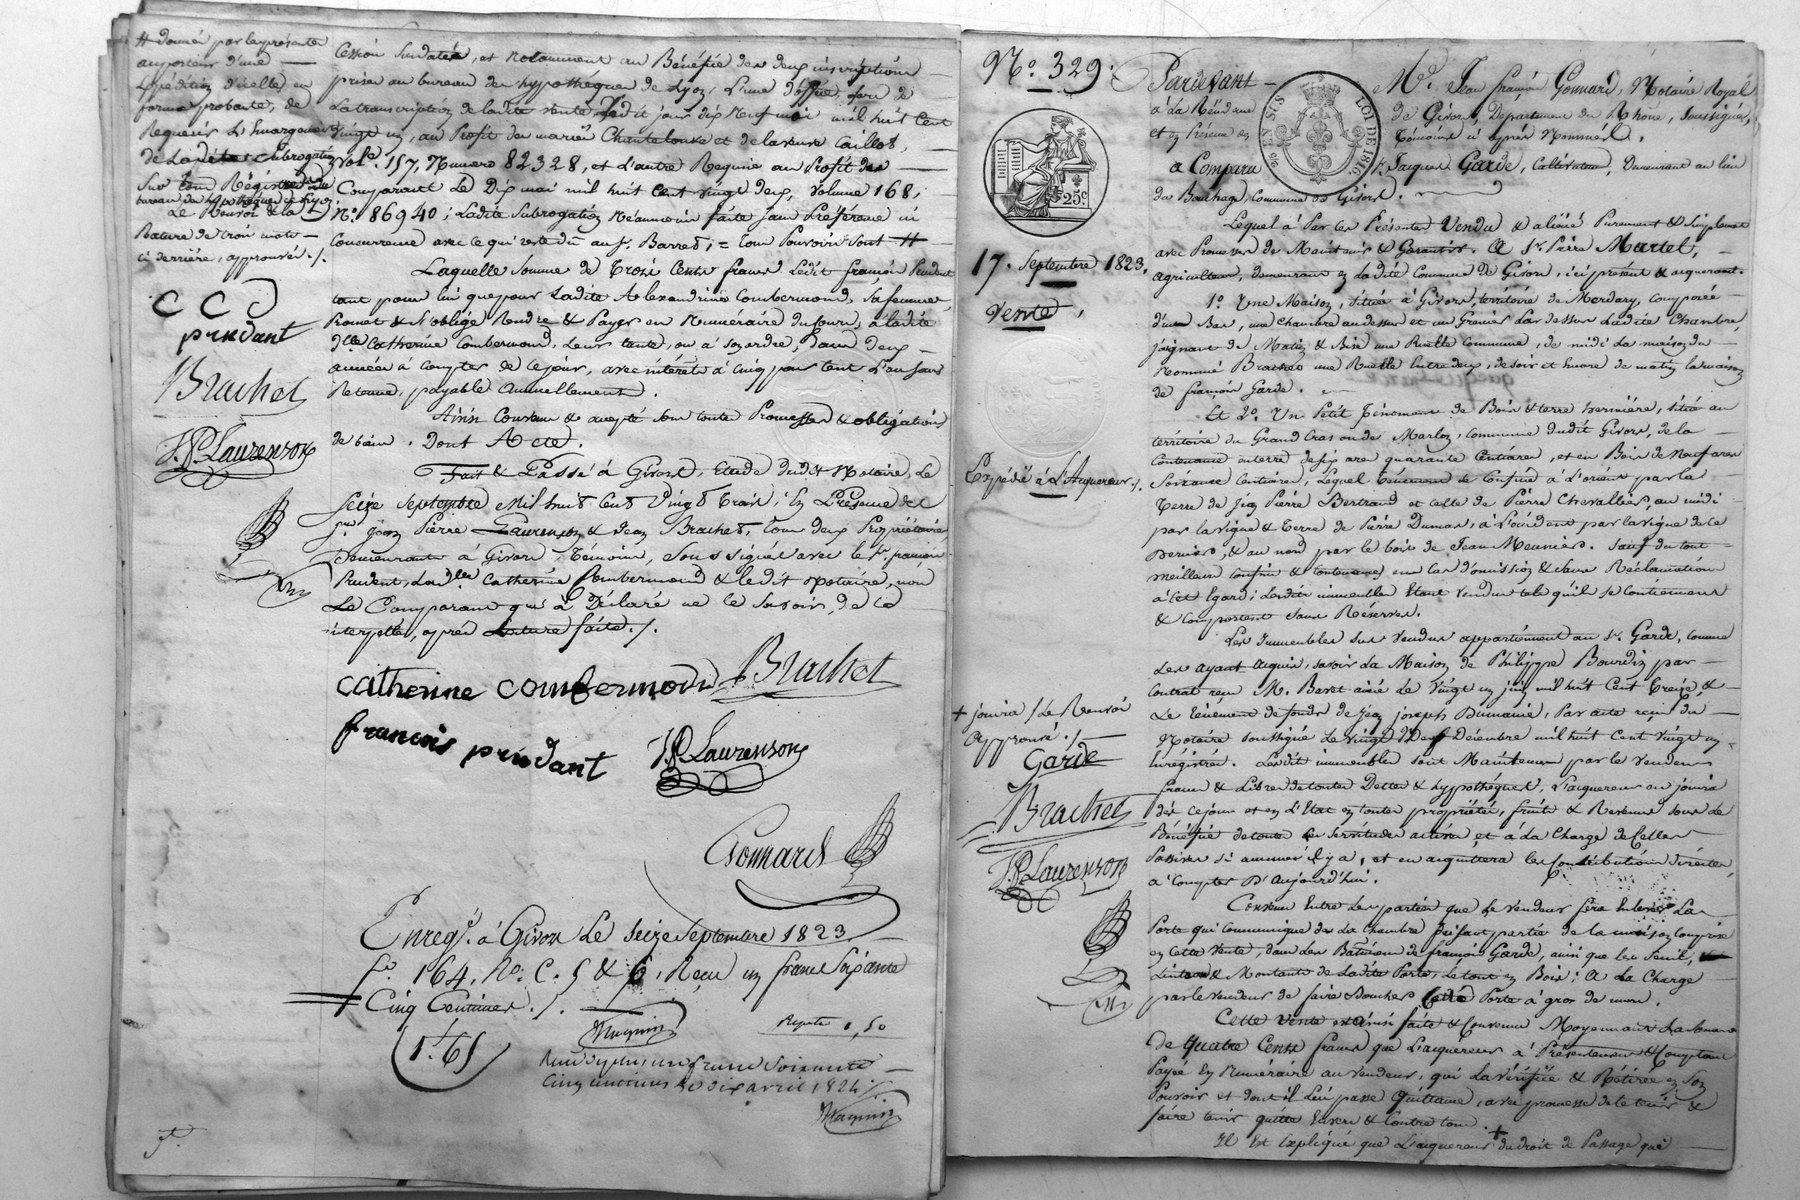 # donné par les présentes
au porteur d'une
Expédition d'icelles en
forme probante, de
Requérir l'Emargement
de Ladite Subrogation
Sur tous Registres du
bureau des hypothèques de Lyon.
Le Renvoi & la
Rature de trois mots
ci derrière, approuvés ./.
C C C
prudant
Brachet
J. P. Laurenson
Cession Susdatée, et notamment au Bénéfice des deux inscriptions
prises au bureau des hypothèques de Lyon, L'une d'office, lors de
La transcription de ladite vente, Ledit jour dix neuf mai mil huit Cent
vingt un, au Profit des mariés Chantelouve et de la veuve Caillot,
vol. 157, Numéro 82328, et L'autre Requise au Profit des
Comparant Le Dix mai mil huit Cent vingt deux, Volume 168,
N.º 86940; Ladite Subrogation Néanmoins faite sans Préférence ni
Concurrence avec ce qui reste dû au Sr. Barret, = tous Pouvoirs Sont #
Laquelle Somme de Trois Cents francs Ledit françois Prudent
tant pour lui que pour Ladite Alexandrine Combermond, Sa femme,
Promet & S'oblige Rendre & Payer en Numéraire du Cours, à ladite
dlle Catherine Combermond, Leur tante, ou à son ordre, dans deux
années à Compter de ce jour, avec intérêts à Cinq pour Cent L'an Sans
Retenue, payable Annuellement.
Ainsi Convenu & accepté sous toutes Promesses & obligations
de biens. Dont Acte.
Fait & Passé à Givors, Etude dudit Notaire, Le
Seize Septembre Mil huit Cent Vingt Trois; En Présence de
Srs. Jean Pierre Laurenson & Jean Brachet, tous deux Propriétaires
Demeurants à Givors, Témoins, Soussignés avec le Sr. françois
Prudent, La dlle Catherine Combermond & ledit Notaire, non
La Comparant qui a Déclaré ne le Savoir, de ce
interpellée, après Lecture faite ./.
catherine combermond Brachet
francois prudant J. P. Laurenson
Gonnard
Enregé. à Givors Le Seize Septembre 1823
fo. 164, No. C. 5 & 6, Reçu un franc Soixante
Cinq Centimes ./.
Magnin
1f. 65
Cinq centimes le dix avril 1824
Magnin
Nº. 329.
25c.
17. Septembre 1823.
Vente,
Expédié à L'Acquéreur ./.
+ jouira / Le Renvoi
Approuvé ./.
Garde
Brachet
J. P. Laurenson
Pardevant Me. Jean françois Gonnard, Notaire Royal
LOI DE 1816
à La Résidence de Givors, Département du Rhône, Soussigné,
et en Présence des Témoins ci après Nommés.
a Comparu Sr. Jacques Garde, Cultivateur, Demeurant au lieu
du Bouchage, Commune de Givors.
Lequel a Par ces Présentes Vendu & aliéné Purement & Simplement
avec Promesse de Maintenir & Garantir, A Sr. Pierre Martel,
Agriculteur, demeurant en Ladite Commune de Givors, ici présent & acquérant.
1º. Une Maison, Située à Givors, territoire de Mordary, Composée
d'un Bas, une chambre au dessus et un Grenier Par dessus Ladite Chambre,
Joignant de Matin & Bise une Ruelle Commune, de midi La maison du
Nommé Brachet une Ruelle Entre deux, de soir et encore de matin la maison
de françois Garde.
Et 2º. Un Petit Tènement de Bois & terre hermière, Situé au
territoire du Grand Cras ou de Marloz, Commune dudit Givors, de la
Contenance en terre de six ares quarante Centiares, et en Bois de Neuf ares
Soixante Centiares, Lequel Tènement se Confine à L'orient par la
Terre de Jean Pierre Bertrand et celle de Pierre Chevallier, au midi
par la vigne & Terre de Pierre Dumas, à L'occident par la vigne de ce
Dernier, & au nord par le bois de Jean Meunier. Sauf du tout
meilleurs Confins & Contenances en Cas d'omission & sans Réclamation
à cet Egard; Lesdits immeubles Etant Vendus tels qu'ils se Contiennent
& Comportent Sans Réserves.
Les Immeubles Sus Vendus appartiennent au Sr. Garde, Comme
Les ayant acquis, Savoir La Maison de Philippe Bourdin par
Contrat reçu M. Baret ainé Le Vingt un juin mil huit Cent Treize, &
Le Tènement de fonds de Jean Joseph Dumanié, Par acte reçu du
Notaire Soussigné Le vingt Neuf Décembre mil huit Cent vingt un
Enregistré. Lesdits immeubles Sont Maintenus par le Vendeur
francs & Libres de toutes Dettes & hypothèques. L'acquéreur en jouira
dès ce jour et en L'Etat en toutes propriétés, fruits & Revenus Sous le
Bénéfice de toutes les Servitudes actives et à la Charge de Celles
Passives Si aucunes il y a, et en acquittera les Contributions directes,
à Compter D'Aujourd'hui.
Convenu Entre les parties que Le vendeur fera Enlever La
Porte qui Communique de La chambre faisant partie de la maison Comprise
en Cette Vente, dans les Bâtimens de françois Garde, ainsi que les Seuil,
Linteau & Montants de Ladite Porte, Le tout en Bois; A La Charge
par le vendeur de faire Boucher Cette Porte à gros de murs.
Cette Vente est Ainsi faite & Convenue Moyennant La Somme
De Quatre Cents francs que L'acquéreur a Présentement & Comptant
Payée En Numéraire au Vendeur, qui La vérifiée & Retirée en Son
Pouvoir et dont il Lui passe Quittance, avec promesse de le tenir &
faire tenir quitte Envers & Contre tous.
Il Est Expliqué que L'acquéreur + du droit de Passage que